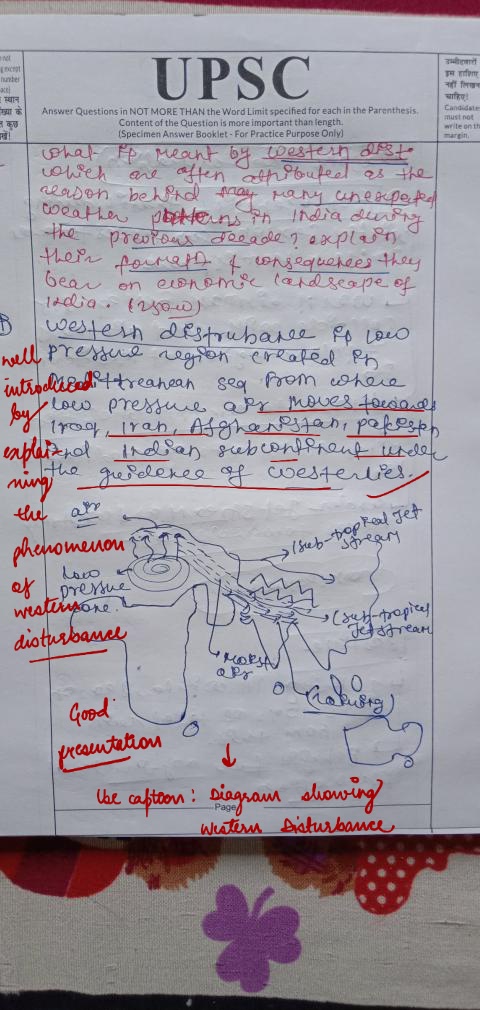 UPSC
Answer Questions in NOT MORE THAN the Word Limit specified for each in the Parenthesis.
Content of the Question is more important than length.
(Specimen Answer Booklet - For Practice Purpose Only)
उम्मीदवारों
इस हाशिए
नहीं लिखना
चाहिए।
Candidates
must not
write on the
margin.
what is meant by western dist
which are often attributed as the
reason behind may many unexpected
weather patterns in India during
the previous decade? explain
their formatn & consequences they
bear on economic landscape of
India. (250w)
western distrubance is low
pressure region created in
Medittreanean sea from where
low pressure air moves towards
Iraq, Iran, Afghanistan, pakistan
and Indian subcontinent under
the guidence of westerlies.
well
introduced
by
explai-
ning
the
phenomenon
of
western
disturbance
air
low
pressure
zone
(sub-tropical Jet
stream
(sub-tropical
Jetstream
moist
air
Good
presentation
Use caption: Diagram showing
Page
Western Disturbance